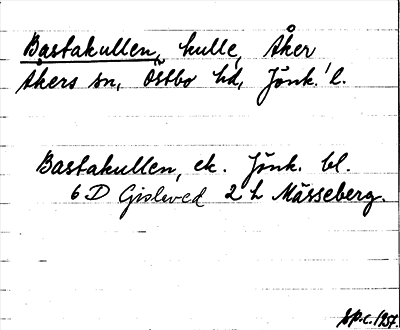 Bastakullen, kulle, Åker
Åkers sn, Östbo hd, Jönk. l.
Bastakullen, ek. Jönk. bl.
6 D Gislaved 2 h Mässeberg.
1957.